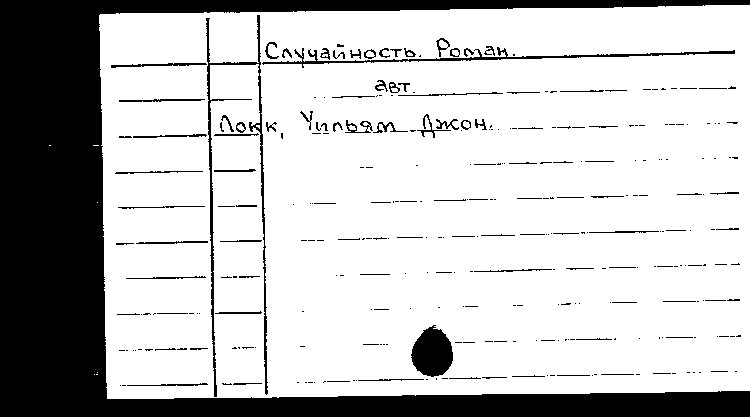 Случайность. Роман.
авт.
Локк, Уильям Джон.